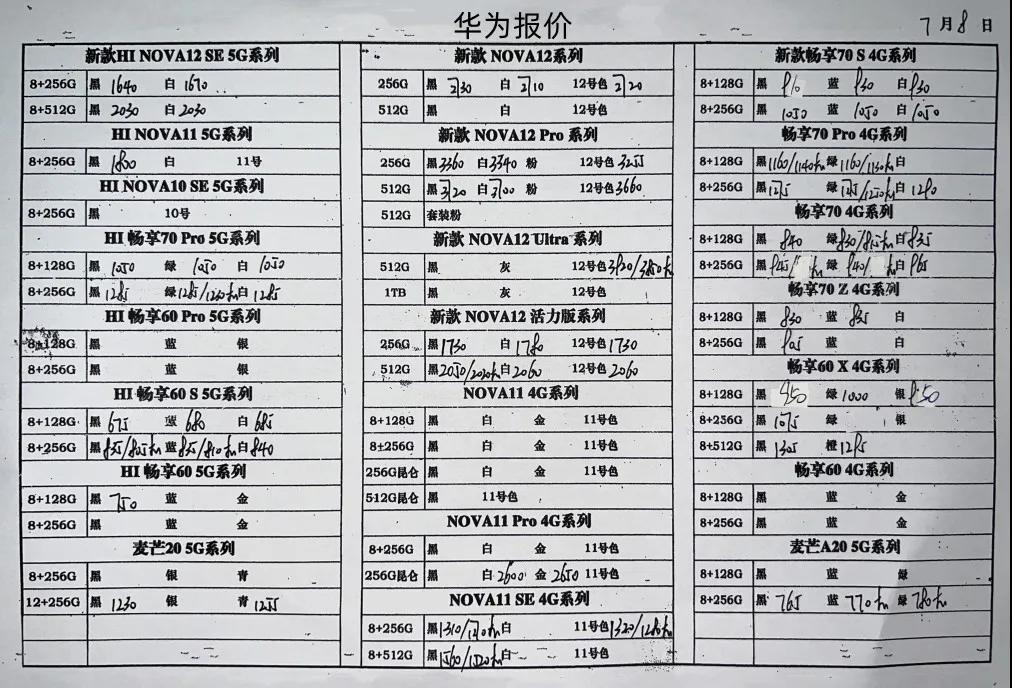 华为报价
7月8日
新款HI NOVA12 SE 5G系列
8+256G 黑 1640 白 1670
8+512G 黑 2030 白 2030
HI NOVA11 5G系列
8+256G 黑 1800 白 11号
HI NOVA10 SE 5G系列
8+256G 黑 10号
HI 畅享70 Pro 5G系列
8+128G 黑 1050 绿 1050 白 1050
8+256G 黑 1285 绿 白 1285
HI 畅享60 Pro 5G系列
8+128G 黑 蓝 银
8+256G 黑 蓝 银
HI 畅享60 S 5G系列
8+128G 黑 675 蓝 680 白 685
8+256G 黑 蓝 白 840
HI 畅享60 5G系列
8+128G 黑 750 蓝 金
8+256G 黑 蓝 金
麦芒20 5G系列
8+256G 黑 银 青
12+256G 黑 1230 银 青 1255
新款 NOVA12系列
256G 黑 2730 白 2710 12号色 2720
512G 黑 白 12号色
新款 NOVA12 Pro 系列
256G 黑 3360 白 3340 粉 12号色 3255
512G 黑 3720 白 3700 粉 12号色 3660
512G 套装粉
新款 NOVA12 Ultra 系列
512G 黑 灰 12号色
1TB 黑 灰 12号色
新款 NOVA12 活力版系列
256G 黑 1730 白 1780 12号色 1730
512G 黑 白 2060 12号色 2060
NOVA11 4G系列
8+128G 黑 白 金 11号色
8+256G 黑 白 金 11号色
256G昆仑 黑 白 金 11号色
512G昆仑 黑 11号色
NOVA11 Pro 4G系列
8+256G 黑 白 金 11号色
256G昆仑 黑 白 2600 金 2650 11号色
NOVA11 SE 4G系列
8+256G 黑 白 11号色
8+512G 黑 白 11号色
新款畅享70 S 4G系列
8+128G 黑 蓝 830 白 830
8+256G 黑 1050 蓝 1050 白 1050
畅享70 Pro 4G系列
8+128G 黑 绿 白
8+256G 黑 绿 白
畅享70 4G系列
8+128G 黑 840 绿 白 835
8+256G 黑 绿 白
畅享70 Z 4G系列
8+128G 黑 830 蓝 835 白
8+256G 黑 蓝 白
畅享60 X 4G系列
8+128G 黑 950 绿 1000 银
8+256G 黑 1075 绿 银
8+512G 黑 1305 橙 1285
畅享60 4G系列
8+128G 黑 蓝 金
8+256G 黑 蓝 金
麦芒A20 5G系列
8+128G 黑 蓝 绿
8+256G 黑 765 蓝 770 绿 780